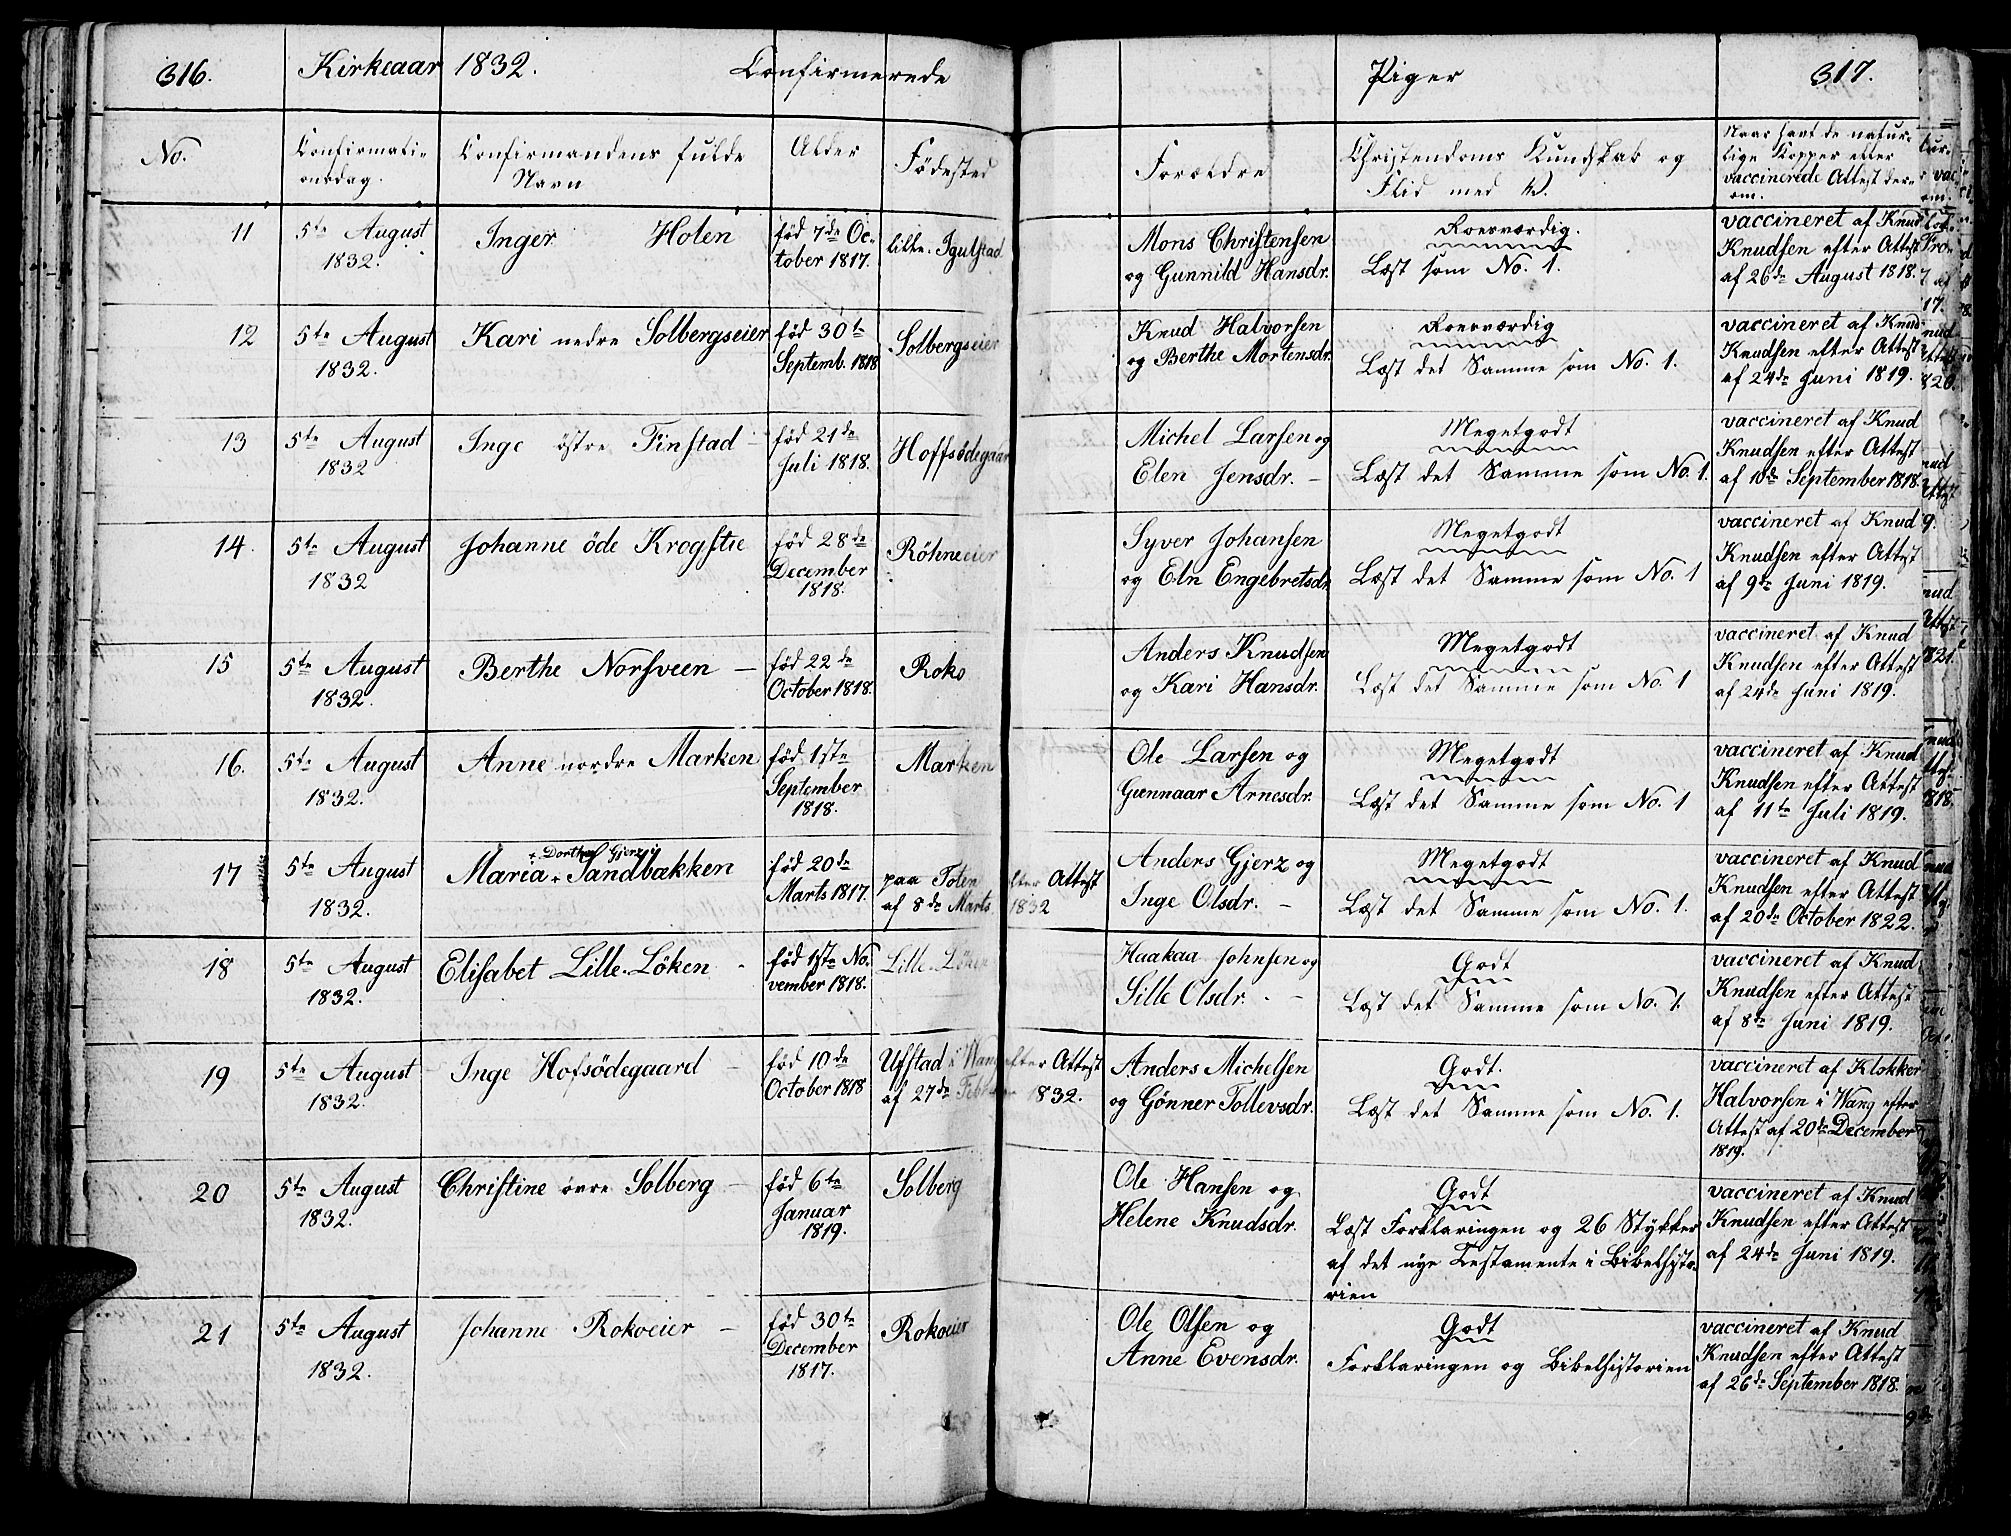 316. Kirkeaar 1832. Confirmerede Piger 317.
No.
Confirmati-
onsdag.
Confirmandens fulde
Navn
Alder
Födested
Forældre
Christendoms Kundskab og
Flid med v.
Naar havt de natur-
lige Kopper eller
vaccinerede Attest der-
om.
11
5te August
1832.
Inger Holen
föd 7de Oc-
tober 1817.
lille
Mons Christensen
og Gunnild Hansdr.
Roesværdig.
Læst som No. 1.
vaccineret af Knud
Knudsen efter Attest
af 26de August 1818.
12
5te August
1832.
Kari nedre Solbergseier
föd 30te
Septemb. 1818
Solbergseier
Knud Halvorsen
og Berthe Mortensdr.
Roesværdig
Læst det Samme som No. 1.
vaccineret af Knud
Knudsen efter Attest
af 24de Juni 1819.
13
5te August
1832
Inge östre Finstad
föd 21de
Juli 1818.
Hoffsödegaar
Michel Larsen og
Elen Jensdr. -
Megetgodt
Læst det Samme som No. 1.
vaccineret af Knud
Knudsen efter Attest
af 10de September 1818.
14.
5te August
1832
Johanne öde Krogstie
föd 28de
December
1818.
Röhneeier
Syver Johansen
og Eln Engebretsdr.
Megetgodt
Læst det Samme som No. 1
vaccineret af Knud
Knudsen efter Attest
af 9de Juni 1819.
15
5te August
1832.
Berthe Norsveen -
föd 22de
October 1818.
Roko
Anders Knudsen
og Kari Hansdr.
Megetgodt
Læst det Samme som No. 1
vaccineret af Knud
Knudsen efter Attest
af 24de Juni 1819.
16.
5te August
1832.
Anne nordre Marken
föd 1ste
September
1818.
Marken
Ole Larsen og
Gunnaar Arnesdr.
Megetgodt
Læst det Samme som No. 1
vaccineret af Knud
Knudsen efter Attest
af 11te Juli 1819.
17
5te August
1832.
+ Dorthea Gjerz i
Maria + Sandbækken
föd 20de
Marts 1817.
paa Toten efter Attest
af 8de Marts 1832
Anders Gjerz og
Inge Olsdr. -
Megetgodt
Læst det Samme som No. 1.
vaccineret af Knud
Knudsen efter Attest
af 20de October 1822.
18
5te August
1832.
Elisabet Lille-Löken
föd 1ste No-
vember 1818.
Lille-Löken
Haakaa Johnsen og
Sille Olsdr. -
Godt
Læst det Samme som No. 1.
vaccineret af Knud
Knudsen efter Attest
af 8de Juni 1819.
19
5te August
1832.
Inge Hofsödegaard
föd 10de
October 1818
Ufstad i Wang efter Attest
af 27de Februar 1832.
Anders Michelsen
og Gönner Tollevsdr.
Godt.
Læst det Samme som No. 1.
vaccineret af Klokker
Halvorsen i Wang efter
Attest af 20de December
1819.
20
5te August
1832.
Christine övre Solberg
föd 6te
Januar
1819.
Solberg
Ole Hansen og
Helene Knudsdr.
Godt
Læst Forklaringen og 26 Stykker
af det nye Testamente i Bibelhisto-
rien
vaccineret af Knud
Knudsen efter Attest
af 24de Juni 1819.
21
5te August
1832.
Johanne Rokoeier -
föd 30te
December
1817.
Rokoeier
Ole Olsen og
Anne Evensdr.
Godt
Forklaringen og Bibelhistorien
vaccineret af Knud
Knudsen efter Attest
af 26de September 1818.